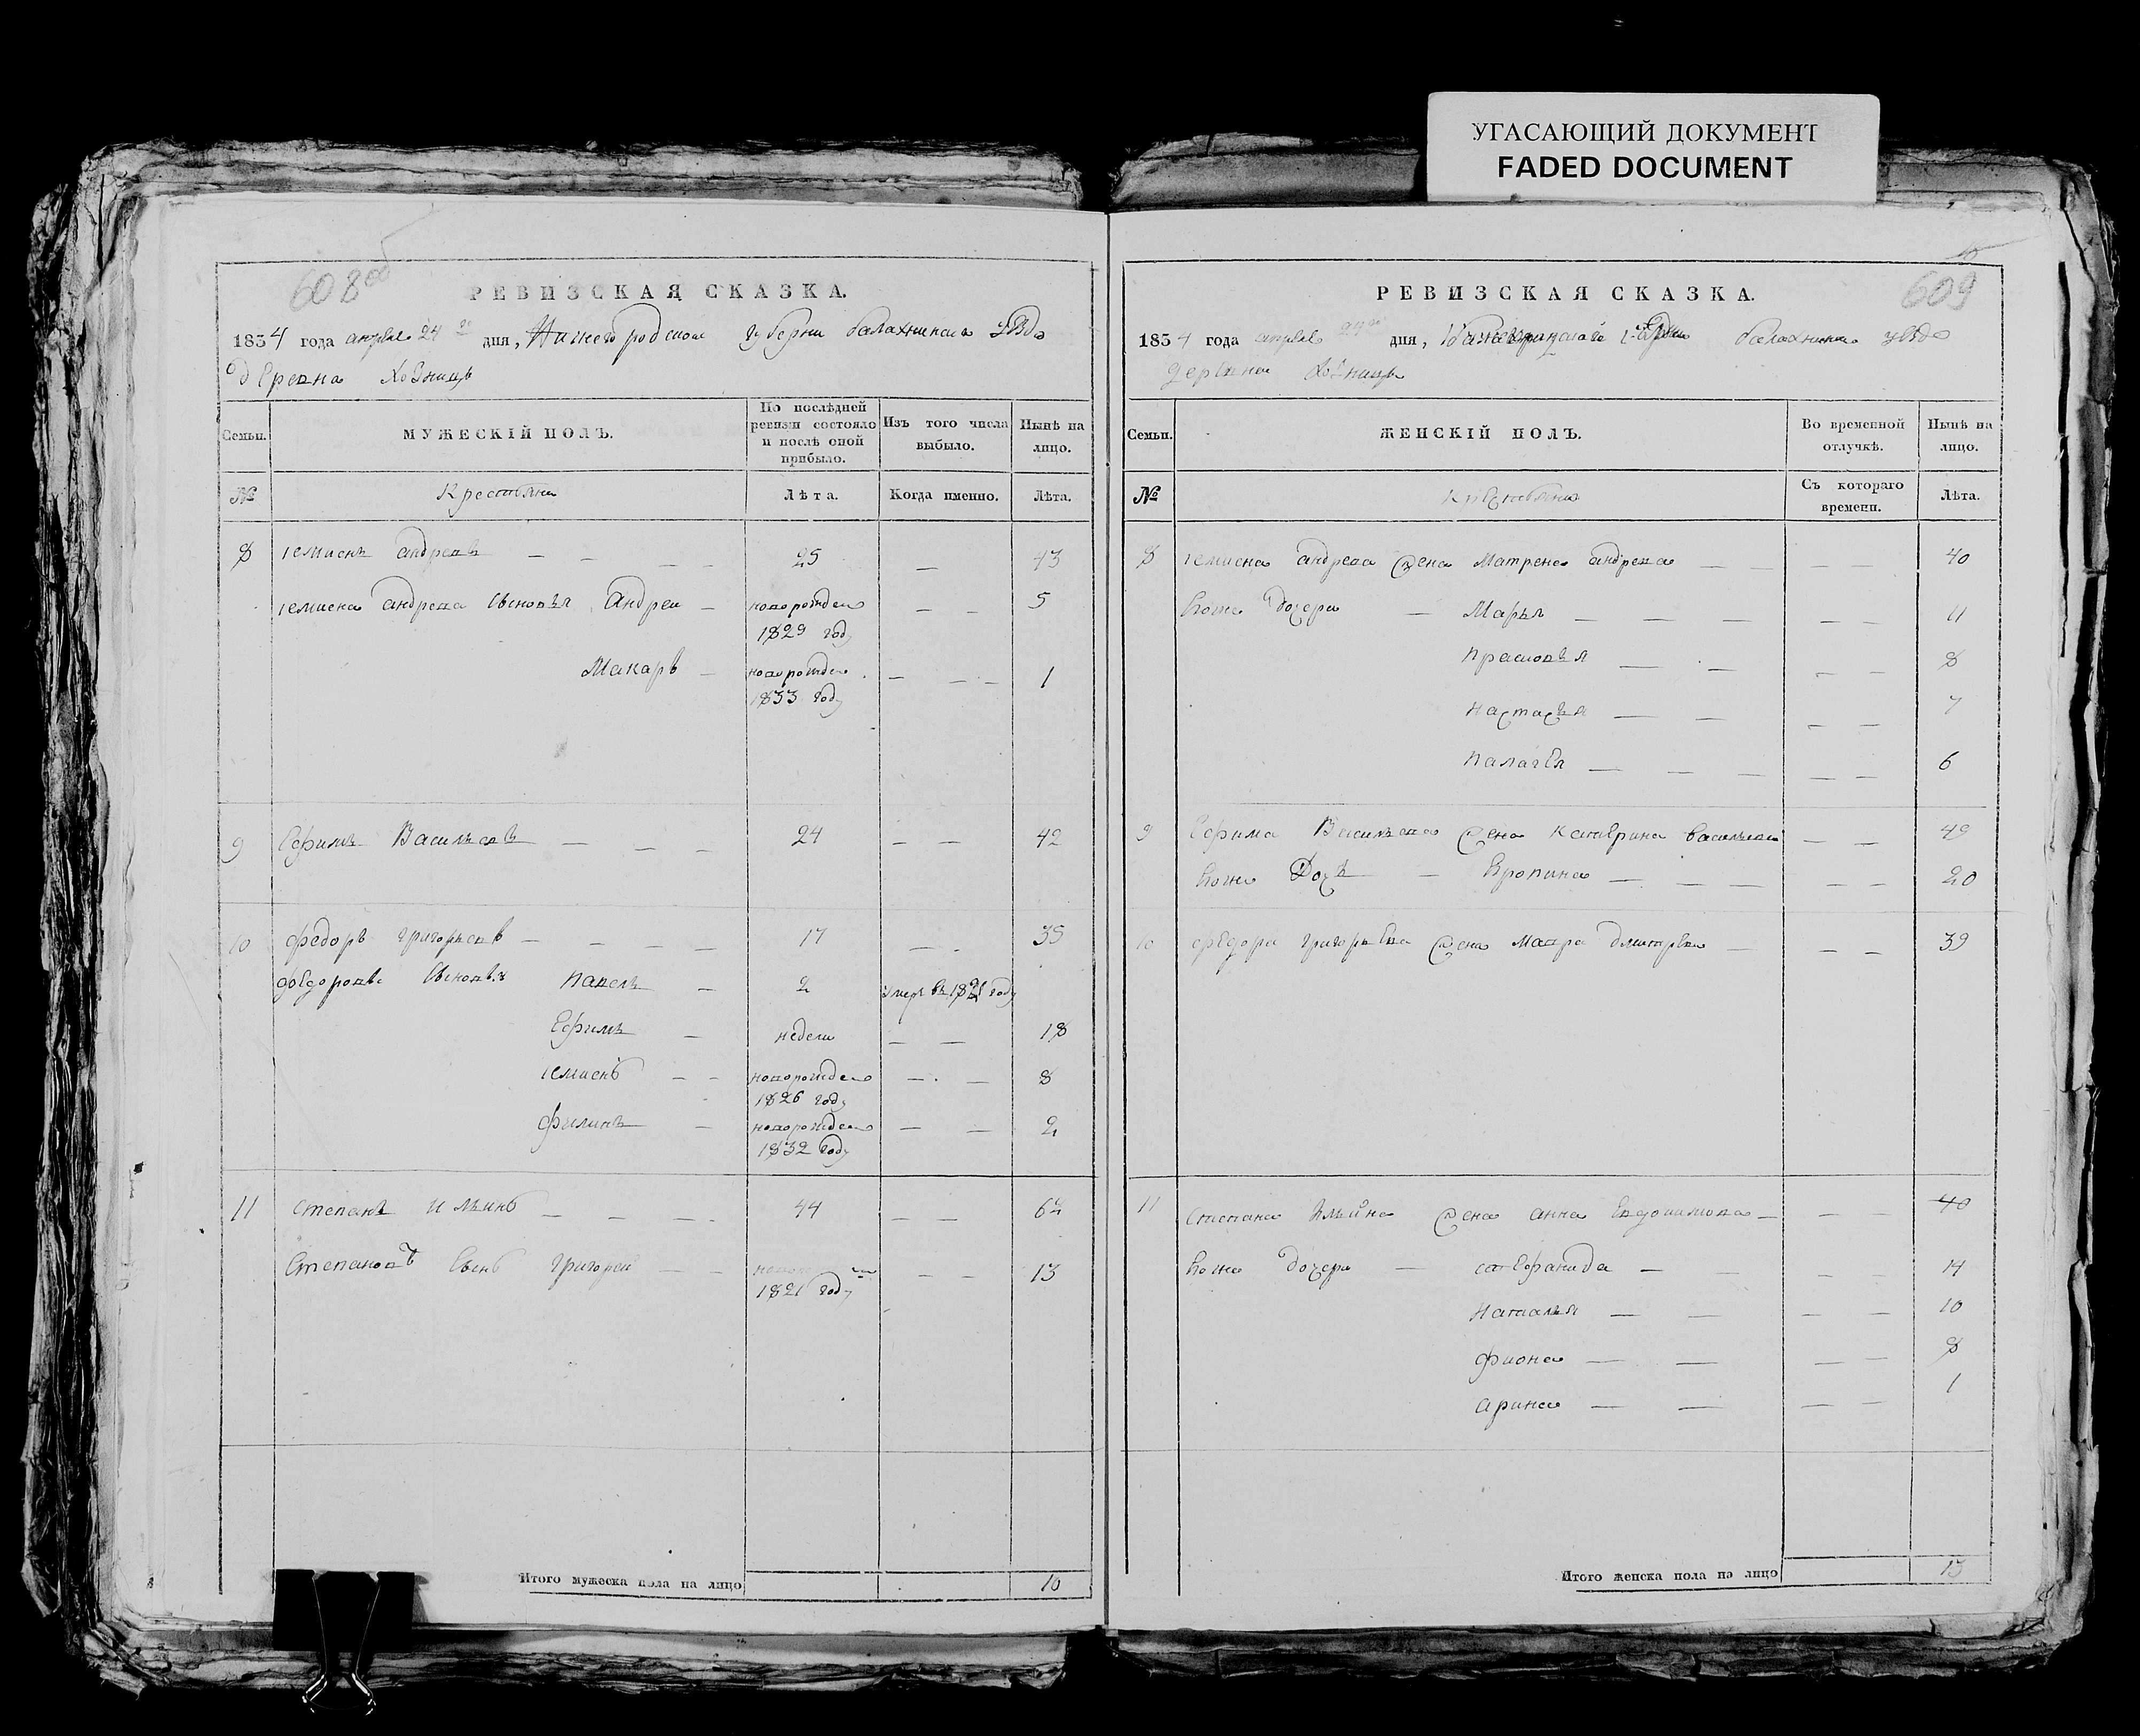 УГАСАЮЩИЙ ДОКУМЕНТ
FADED DOCUMENT
608об
РЕВИЗСКАЯ СКАЗКА.
1834 года апреля 24 го дня, Нижегородской губерни балахнинска уезда
деревна
Семьи. МУЖЕСКІЙ ПОЛЪ. По послѣдней ревизіи состояло и послѣ оной прибыло. Изъ того числа выбыло. Нынѣ на лицо.
№ Крестьяни Лѣта. Когда именно. Лѣта.
8 андреевъ — — — — 25 — 43
андреева Андреи — новорожден — — 5
1829 году
Макаръ — новорожден — — — 1
1833 году
9 Ефимъ Васильевъ — — — 24 — — 42
10 федоръ григорьевъ — — — — 17 — — 35
Павелъ — 2 умеръ въ году
Ефимъ — недели — — 18
— — новорожден — — 8
1826 году
филипъ — новорожден — — 2
1832 году
11 степанъ ильинъ — — — 44 — — 62
Степановъ сынъ григореи — — — — 13
1821 году
Итого мужеска пола на лицо 10
609
РЕВИЗСКАЯ СКАЗКА.
1834 года апреля дня, балахнинска уезда
деревна
Семьи. ЖЕНСКІЙ ПОЛЪ. Во временной отлучкѣ. Нынѣ на лицо.
№ Съ котораго времени. Лѣта.
8 андреева жена Матрена андреева — — — — 40
дочери — Марья — — — — — 11
Прасковья — — — — 8
Настасья — — — — 7
Палагея — — — — — 6
9 Ефима Васильева жена Катерина васильева — — 49
дочь — — — — — — 20
10 федора григорьева жена Мавра дмитрева — — — 39
11 степана ильина жена анна Евдокимова — — — 40
дочери — стефанида — — — — 14
Наталья — — — — 10
фиона — — — — 8
арина — — — — 1
Итого женска пола на лицо 13